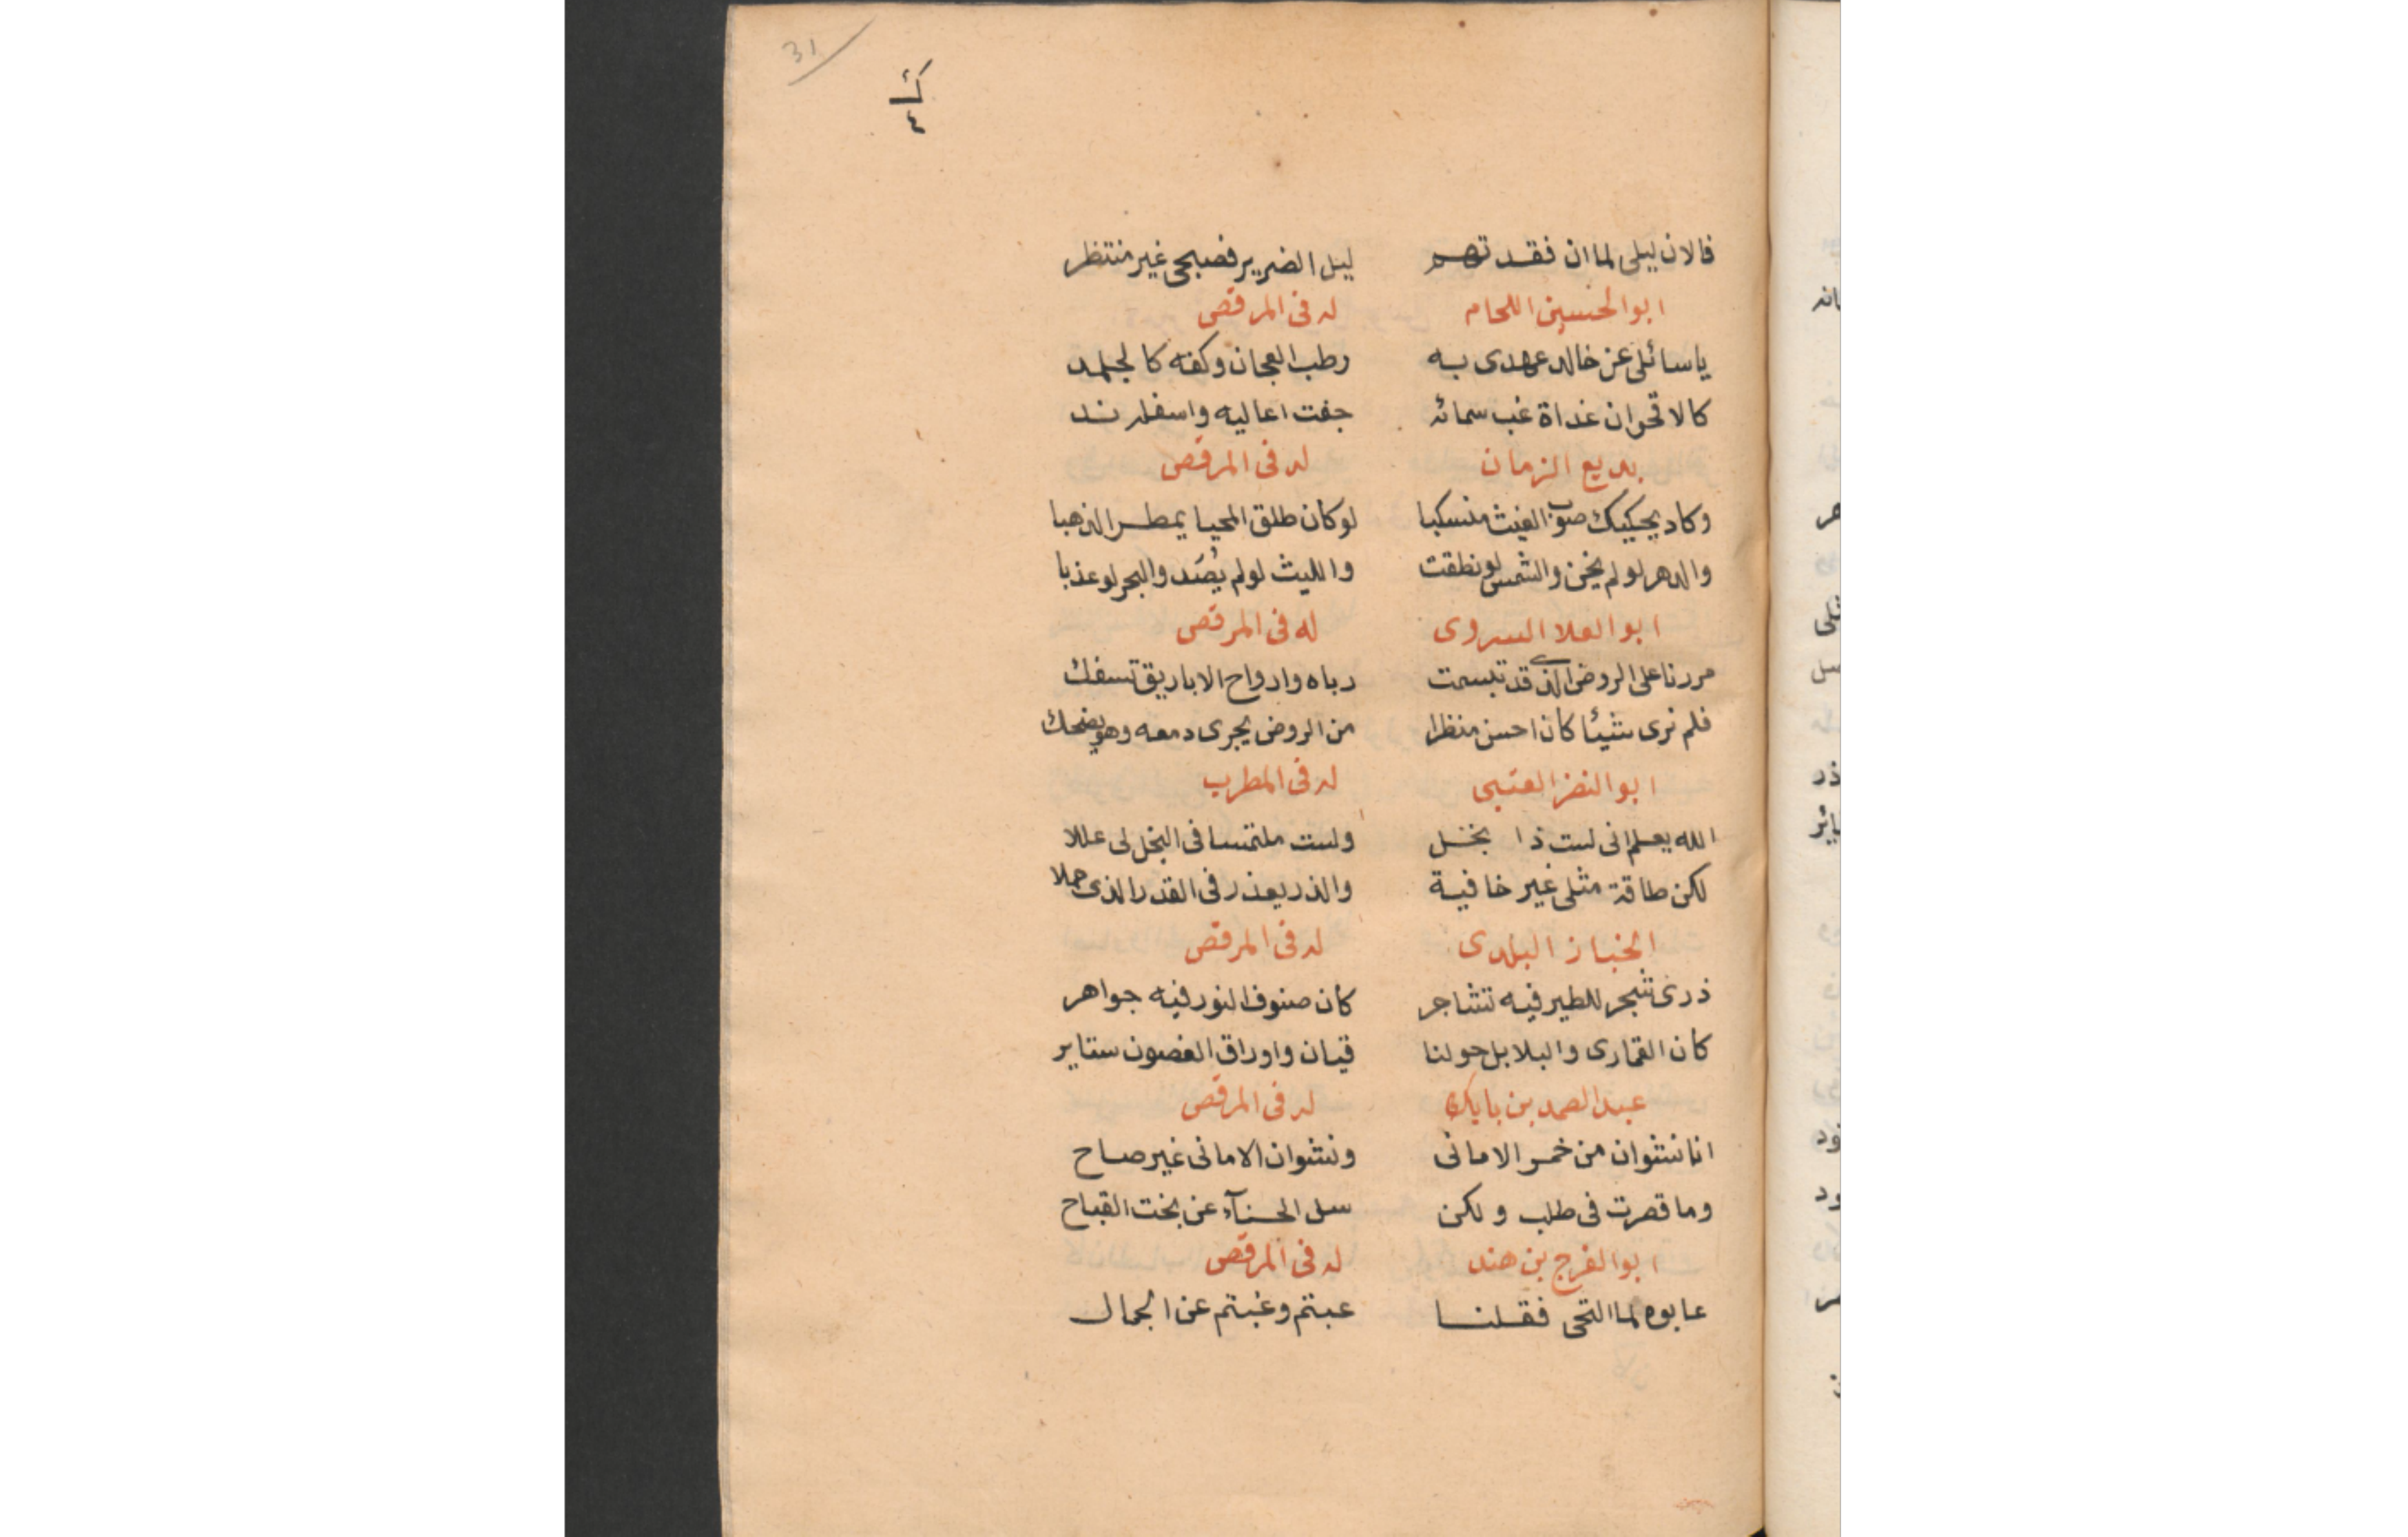 31
ك
٤
فالان ليلى لما ان فقدتهم ليل الضرير فصبحى غير منتظر
ابو الحسين اللحام له فى المرقص
ياسائلى عن خالد عهدى به رطب العجان وكفه كالجلمد
كالاقحوان غداة غب سمائه جفت اعاليه واسفله ند
بديع الزمان له فى المرقص
وكاد يحيكيك صوب الغيث منسكبا لو كان طلق المحيا يمطر الذهبا
والدهر لو لم يخن والشمس لو نطقت والليث لو لم يُصَد والبحر لو عذبا
ابو العلا السروى له فى المرقص
مررنا على الروض الذى قد تبسمت رباه وارواح الاباريق تسفك
فلم نرى شيئا كان احسن منظرا من الروض يجرى دمعه وهو يضحك
ابو النضر العتبى له فى المطرب
الله يعلم انى لست ذا بخل ولست ملتمسا فى البخل لى عللا
لكن طاقة مثلى غير خافية والذر يعذر فى القدر الذى حملا
الخباز البلدى له فى المرقص
ذرى شجر للطير فيه تشاجر كان صنوف النور فيه جواهر
كان القمارى والبلابل حولنا قيان واوراق الغصون ستاير
عبد الصمد بن بابك له فى المرقص
انا نشوان من خمر الامانى ونشوان الامانى غير صاح
وما قصرت فى طلب ولكن سل الحسنآء عن بخت القباح
ابو الفرج بن هند له فى المرقص
عابوه لما التحى فقلنا عبتم وغبتم عن الجمال